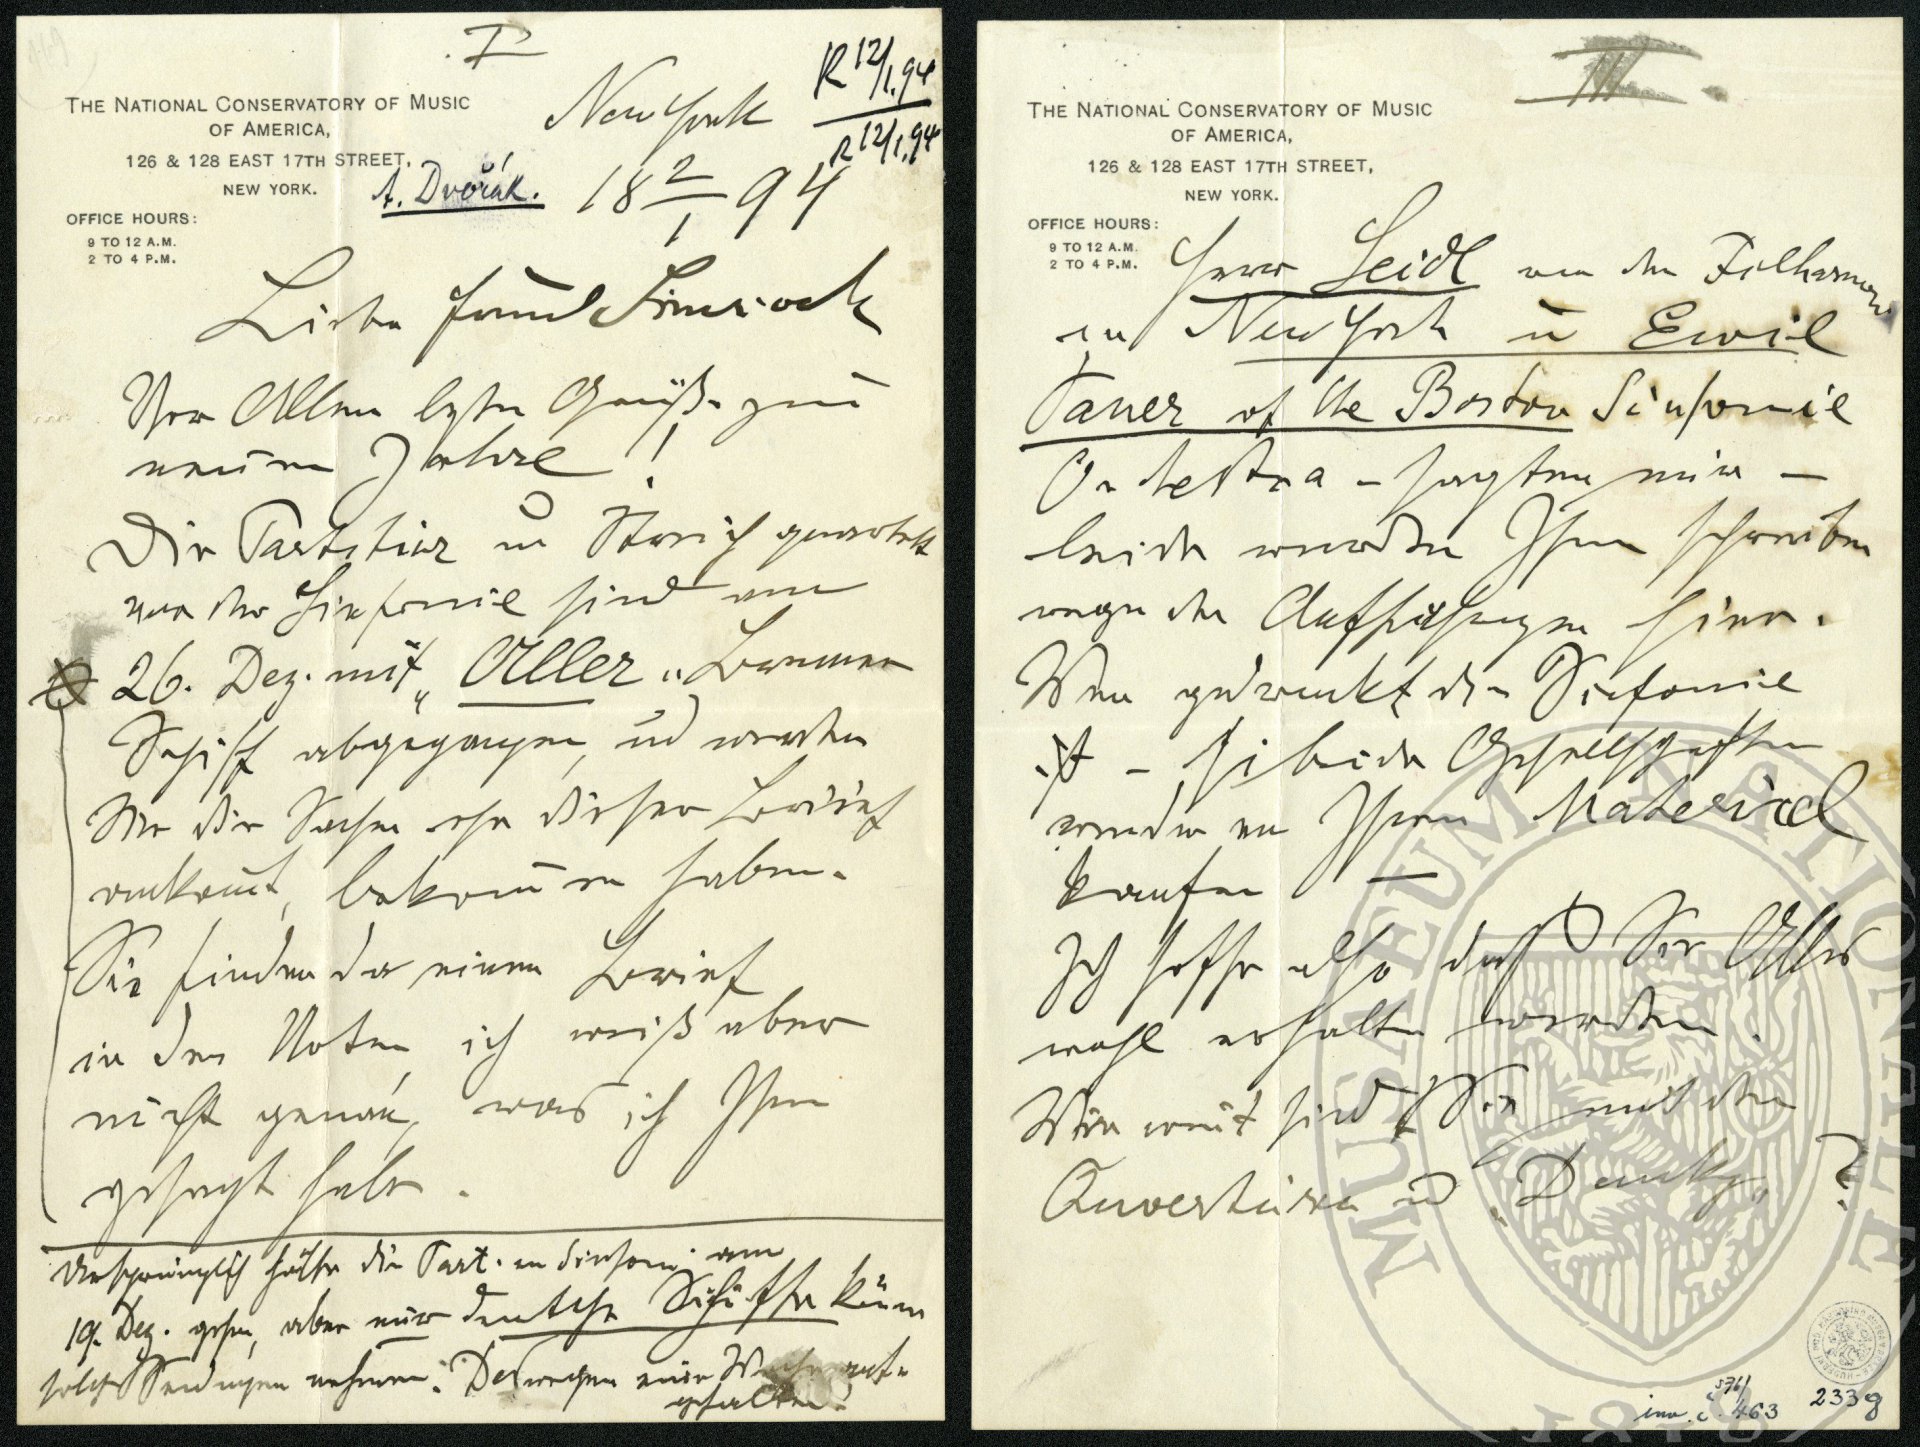 I
THE NATIONAL CONSERVATORY OF MUSIC
OF AMERICA,
126 & 128 EAST 17TH STREET,
NEW YORK.
OFFICE HOURS:
9 TO 12 A.M.
2 TO 4 P.M.
A. Dvořák.
New York
18 2/1 94
R 12/1.94
R 12/1.94
Lieber Freund Simrock
Vor Allem beste Grüße zum
neuen Jahre!
Die Partitur u Streichquartett
von der Sinfonie sind am
26. Dez. mit „Aller“ Bremer
Schiff abgegangen, und werden
Sie die Sachen ehe dieser Brief
ankommt, bekommen haben.
Sie finden da einen Brief
in den Noten, ich weiß aber
nicht genau, was ich Ihnen
gesagt habe.
Ursprünglich hätte die Part. am
19. Dez. gehen, aber nur deutsche Schiffe können
solche Sendungen nehmen. Deswegen eine Woche
gehalten.
III
THE NATIONAL CONSERVATORY OF MUSIC
OF AMERICA,
126 & 128 EAST 17TH STREET,
NEW YORK.
OFFICE HOURS:
9 TO 12 A.M.
2 TO 4 P.M.
Herr Seidl von den Filharmon
in New York u Emil
Paner of the Boston Sinfonie
Orchestra – sagten mir –
beide werden Ihnen schreiben
wegen der Aufführungen hier.
Wen gedruckt die Sinfonie
ist – beide Gesellschaften
werden von Ihnen Material
kaufen –
Ich hoffe also daß Sie Alles
wohl erhalten werden.
Wie weit sind Sie mit den
Ouverturen u „Dumky“ ?
MUSEUM NATIONALE
1818
576/
inv. č. 463
2339